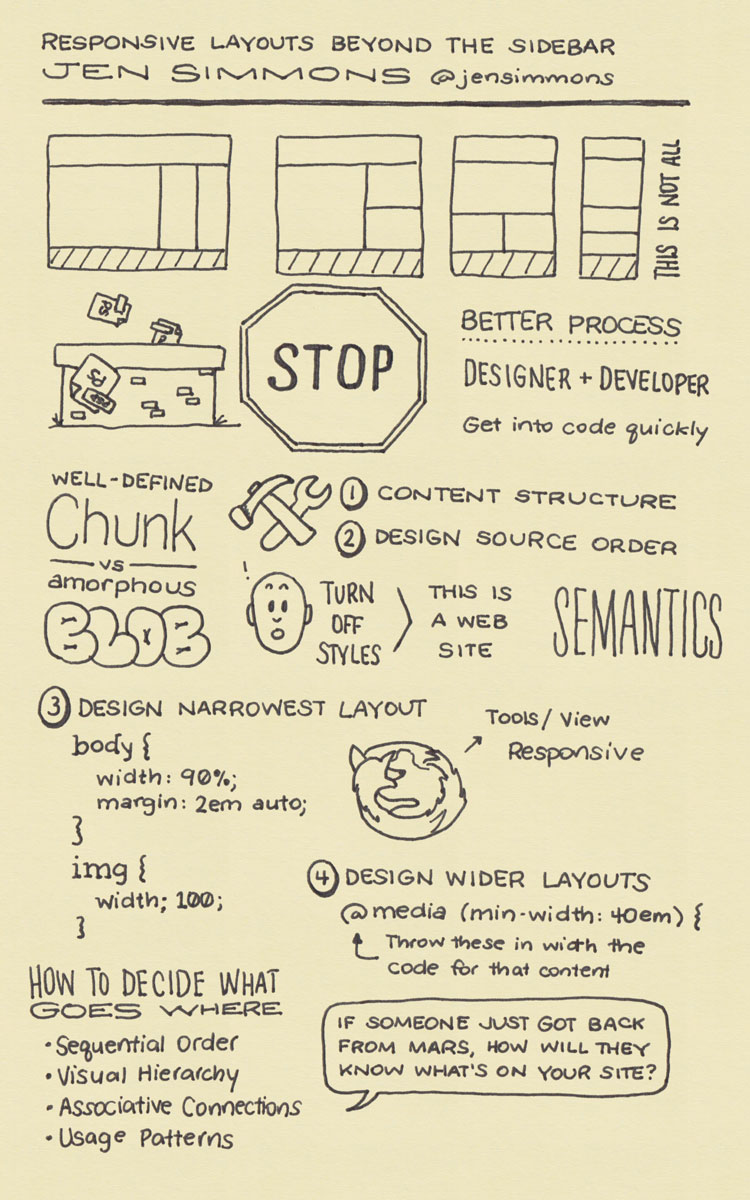 RESPONSIVE LAYOUTS BEYOND THE SIDEBAR
JEN SIMMONS @jensimmons
THIS IS NOT ALL
STOP
BETTER PROCESS
DESIGNER + DEVELOPER
Get into code quickly
WELL-DEFINED
Chunk
vs
amorphous
BLOB
1 CONTENT STRUCTURE
2 DESIGN SOURCE ORDER
!
TURN
OFF
STYLES
THIS IS
A WEB
SITE
SEMANTICS
3 DESIGN NARROWEST LAYOUT
body {
width: 90%;
margin: 2em auto;
}
img {
width; 100;
}
Tools/View
Responsive
4 DESIGN WIDER LAYOUTS
@media (min-width: 40em) {
Throw these in with the
code for that content
HOW TO DECIDE WHAT
GOES WHERE
• Sequential Order
• Visual Hierarchy
• Associative Connections
• Usage Patterns
IF SOMEONE JUST GOT BACK
FROM MARS, HOW WILL THEY
KNOW WHAT'S ON YOUR SITE?